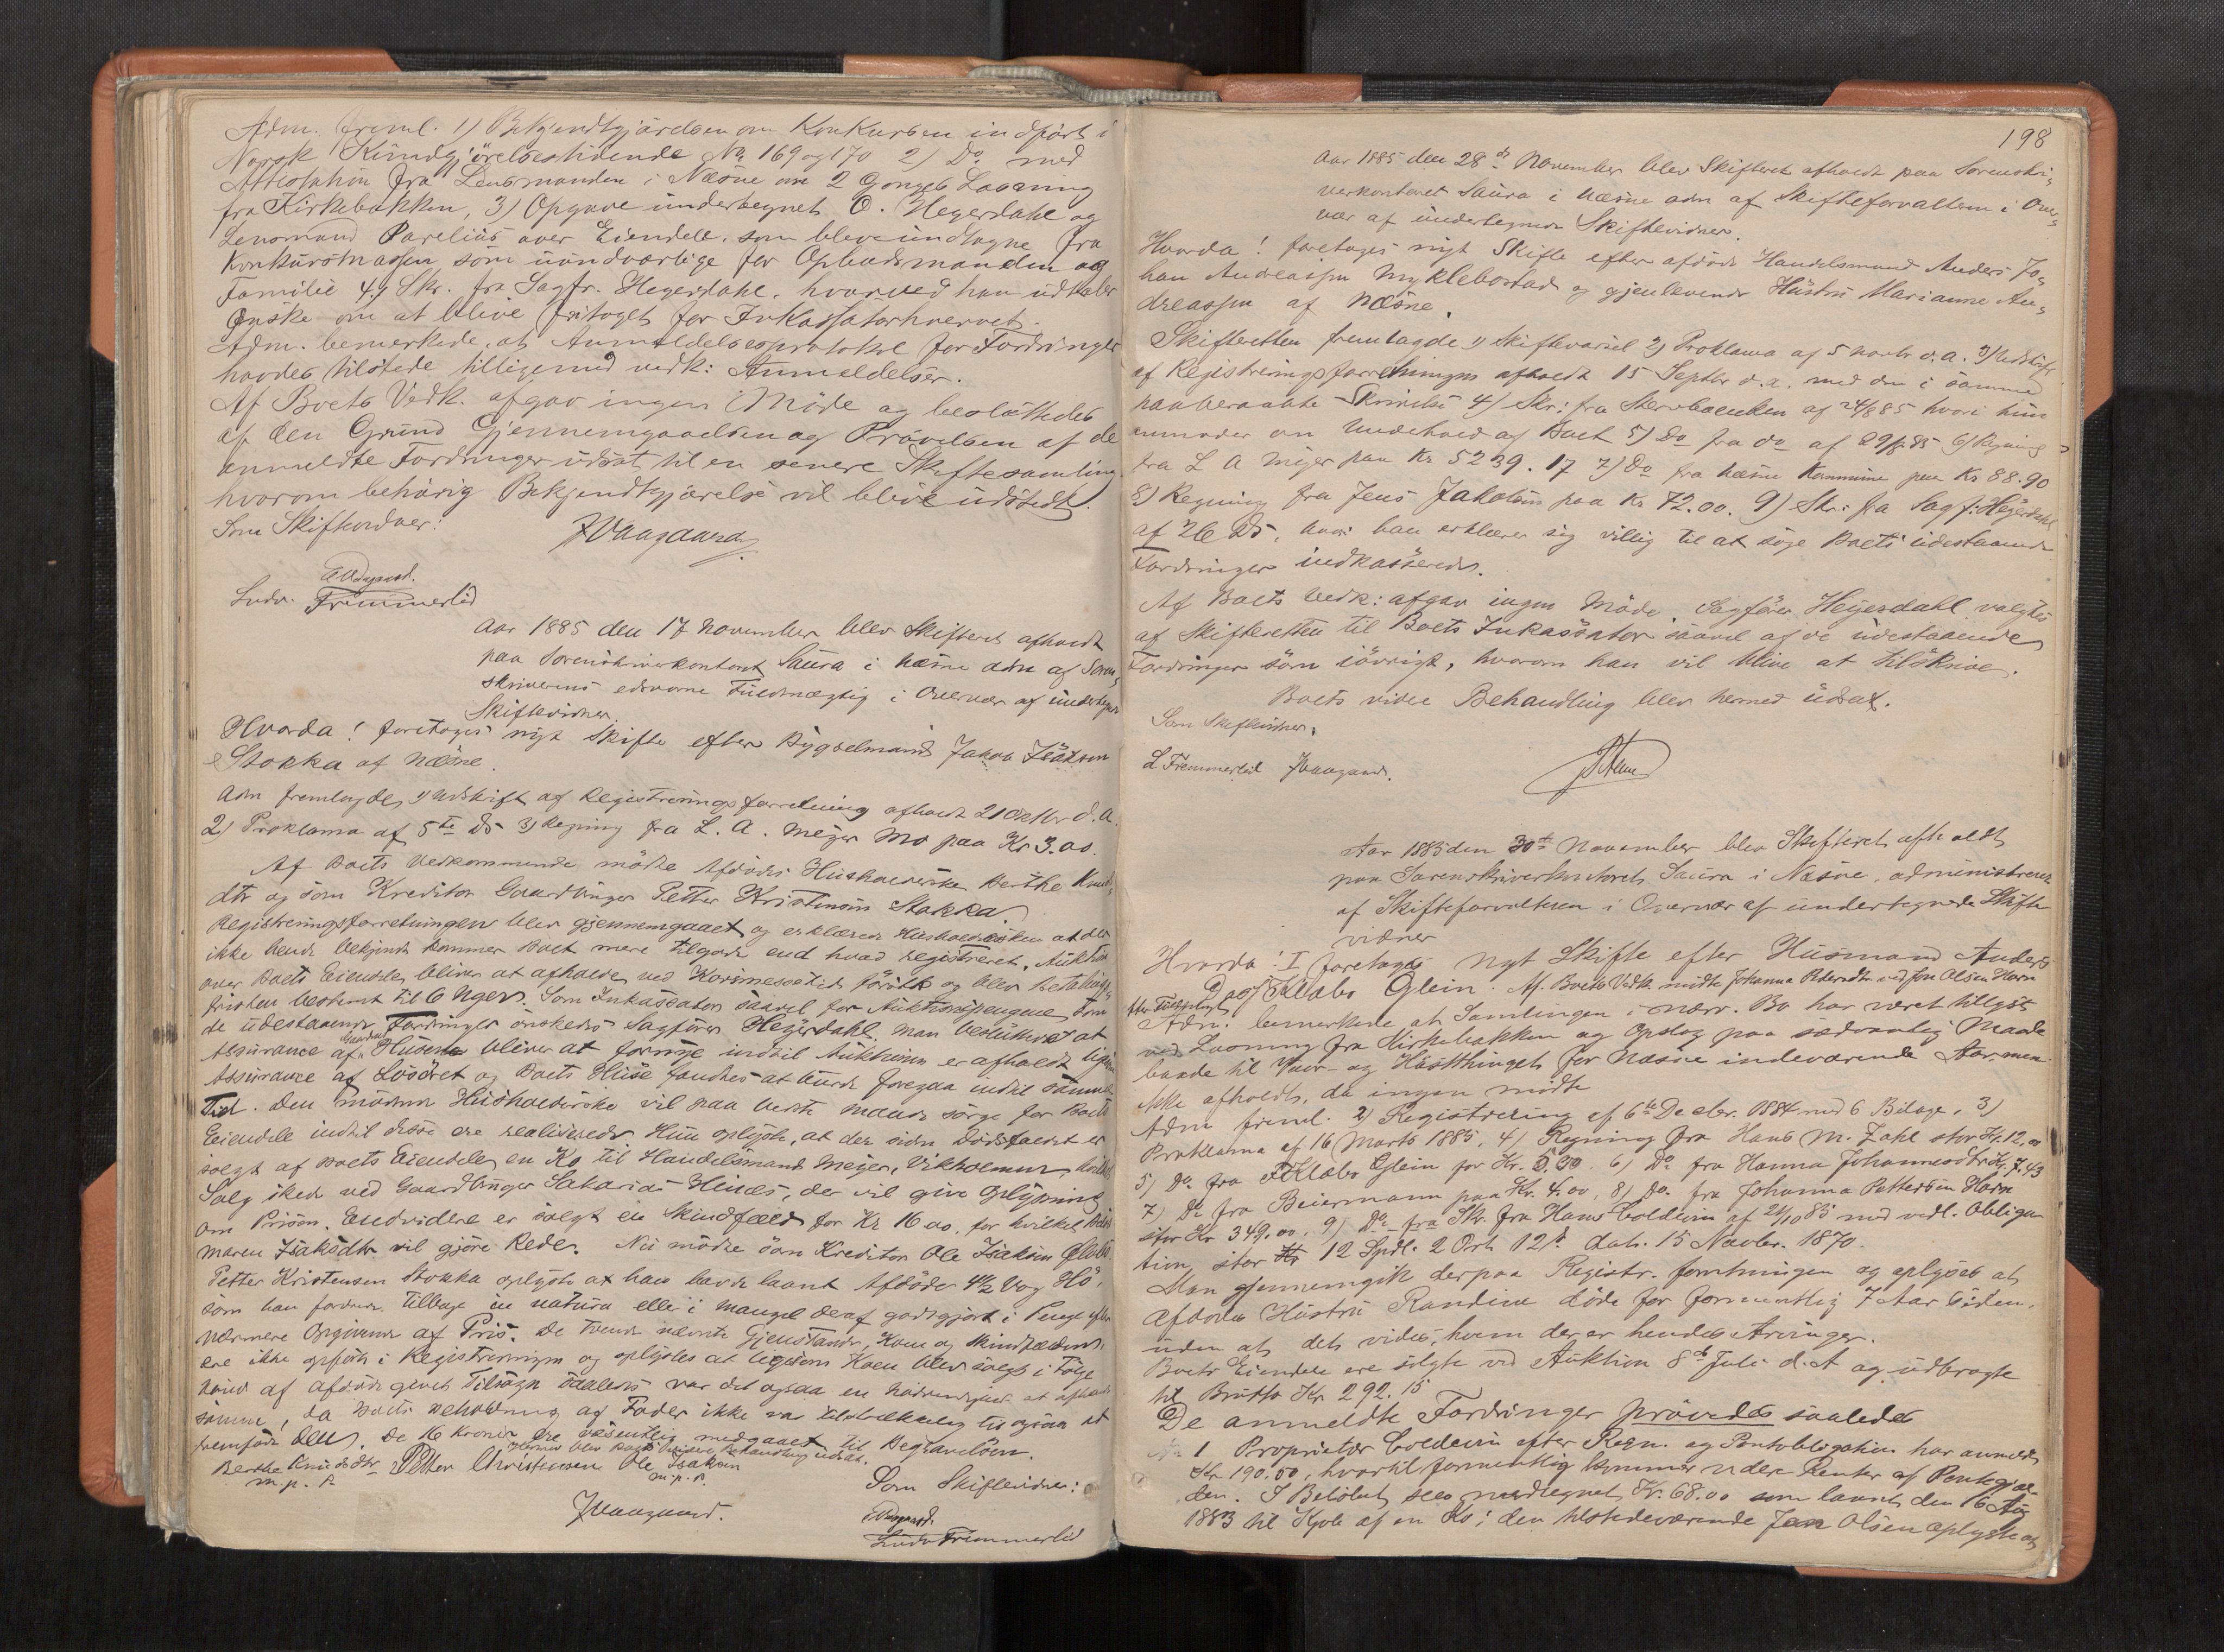 Adm. freml. 1) Bekjendtgjörelsen om Konkursen indfört i
Norsk Kundgjörelsestidende No 169 og 170 2) Do med
Attestation fra Lensmanden i Næsne om 2 Ganges Læsning
fra Kirkebakken, 3) Opgave undertegnet O. Hegerdahl og
Lensmand Parelius over Eiendele, som bleve undtagne fra
Konkursmassen som uundværlige for Opbudsmanden og
Familie 4) Skr. fra Sagfr. Hegerdahl, hvorved han udtaler
Ønske om at blive fritaget for Inkassatorhvervet.
Adm. bemerkede, at Anmeldelsesprotokol for Fordringer
havdes tilstede tilligemed vedk: Anmeldelser.
Af Boets Vedk. afgav ingen Möde og besluttedes
af den Grund Gjennemgaaelsen og Prövelsen af de
anmeldte Fordringer udsat til en senere Skiftesamling
hvorom behörig Bekjendtgjörelse vil blive udstedt.
Som Skiftevidner: JVaagaard
Ludv. Fremmerlid
Aar 1885 den 17 November blev Skifteret afholdt
paa Sorenskriverkontoret Saura i Næsne adm af Soren-
skriverens edsvorne Fuldmægtig i Overvær af undertegn
Skiftevidner.
Hvorda! foretoges nyt Skifte efter Bygselmand Jakob Isaksen
Stokka af Næsne.
Adm fremlagde, 1) Udskrift af Registreringsforretning afholdt 21 Oktbr d. A.
2) Proklama af 5te Ds 3) Regning fra L. A. Meyer Mo paa Kr 3.00.
Af Boets Vedkommende mödte Afdödes Husholderske Berthe Knuds-
dtr og som Kreditor Gaardbruger Petter Kristensen Stokka.
Registreringsforretningen blev gjennemgaaet og erklærede Husholdersken at der
ikke hende bekjendt kommer Boet mere tilgode end hvad registreret. Auktion
over Boets Eiendele bliver at afholde ved og blev Betalings-
fristen bestemt til 6 Uger. Som Inkassator saavel for Auktionspengene som
de udestaaende Fordringer önskedes Sagförer Hegerdahl. Man besluttede at
Assurance af Husene bliver at fornye indtil Auktionen er afholdt
Assurance af Lösöret og Boets Huse fandtes at burde foregaa indtil samme
Tid. Den mödende Husholderske vil paa bedste Maade sörge for Boets
Eiendele indtil disse ere realiserede. Hun oplyste, at der siden Dödsfaldet er
solgt af Boets Eiendele en Ko til Handelsmand Meyer, Vikholmen, hvilket
Salg skede ved Gaardbruger Sakarias , der vil give Oplysning
om Prisen. Endvidere er solgt en Skindfæld for Kr 16.00, for hvilket Beløb
Maren Isaksdtr. vil gjöre Rede. Nu mödte som Kreditor Ole Isaksen
Petter Kristensen Stokka oplyste at han havde laant Afdöde 4½ Vog Hö,
som han fordrede tilbage in natura eller i Mangel deraf godtgjort i Penge efter
nærmere Opgivende af Pris. De tvende nævnte Gjenstande, Koen og Skindfælden
ere ikke opfört i Registreringen og oplystes at ligesom Koen blev solgt i Fölge
af Afdöde givet Tilsagn saaledes var det ogsaa en Nödvendighed at afhænde
samme, da Boets Beholdning af Foder ikke var tilstrækkelig til at
fremföde den. De 16 Kroner ere væsentlig medgaaet til Begravelsen.
Hermed blev Boets videre Behandling udsat.
Berthe Knudsdtr Petter Christensen Ole Isaksen
m. p. P. m. p. P.
Som Skiftevidner:
JVaagaard.
Ludv Fremmerlid
198
Aar 1885 den 28de November blev Skifteret afholdt paa Sorenskri-
verkontoret Saura i Næsne adm af Skifteforvalteren i Over-
vær af undertegnede Skiftevidner.
Hvorda! foretoges nyt Skifte efter afdöde Handelsmand Anders Jo-
han Andreassen Myklebostad og gjenlevende Hustru Marianne An-
dreassen af Næsne.
Skifteretten fremlagde 1) Skiftevarsel 2) Proklama af 5 Novbr d. a. 3) Udskrift
af Registreringsforretningen afholdt 15 Septbr d. a. med den i samme
paaberaabte Skrivelse 4) Skr: fra af 24/8 85 hvori hun
anmoder om Boet 5) Do fra do af 29/8 85 6) Regning
fra L A Meyer paa Kr 5239.17 7) Do fra Næsne Kommune paa Kr 88.90
8) Regning fra Jens Jakobsen paa Kr 72.00. 9) Skr: fra Sagf: Hegerdahl
af 26 Ds, hvori han erklærer sig villig til at söge Boets udestaaende
Fordringer indkasserede.
Af Boets Vedk: afgav ingen Möde. Sagförer Hegerdahl valgtes
af Skifteretten til Boets Inkassator saavel af de udestaaende
Fordringer som iövrigt, hvorom han vil blive at tilskrive.
Boets videre Behandling blev hermed udsat.
Som Skiftevidner.
L Fremmerlid JVaagaard.
Aar 1885 den 30te November blev Skifteret afholdt
paa Sorenskriverkontoret Saura i Næsne, administreret
af Skifteforvalteren i Overvær af undertegnede Skifte
vidner
Hvorda: I foretoges nyt Skifte efter Husmand Anders
Dass Fiklabo Glein. Af Boets Vedk. mödte Johanna Petersdtr ved Jon Olsen Havn
efter Tillysning
Adm. bemerkede at Samlingen i nærv. Bo har været tillyst
ved Læsning fra Kirkebakken og Opslag paa sædvanlig Maade
baade til Vaar- og Höstthinget for Næsne indeværende Aar, men
ikke afholdt, da ingen mödte
Adm freml. 2) Registrering af 6te Decbr. 1884 med 6 Bilage, 3)
Proklama af 16 Marts 1885, 4) Regning fra Hans M. Zahl stor Kr. 12,00
5) Do. fra Glein for Kr. 5.30. 6) Do fra Hanna Johannesdtr Kr. 7,43
7) Do fra Beiermann paa Kr. 4.00, 8) Do. fra Johanna Pettersen Havn
stor Kr 349.00. 9) Do fra Skr. fra Hans Coldevin af 21/10 85 med vedl. Obliga-
tion stor 12 Spdl. 2 Ort 12 s. dat. 15 Novbr. 1870.
Man gjennemgik derpaa Registr. forretningen og oplystes at
afdödes Hustru Randine döde for formentlig 7 Aar siden,
uden at det vides, hvem der er hendes Arvinger.
Boets Eiendele ere solgte ved Auktion 8de Juli d. A og udbragte
til Brutto Kr. 292.15
De anmeldte Fordringer prövedes saaledes
No 1 Proprietær Coldevin efter Regn. og Panteobligation har anmeldt
Kr. 190.50, hvortil formentlig kommer videre Renter af Pantegjæl-
den. I Belöbet sees medregnet Kr. 68.00 som laant den 16 Aug
1883 til Kjöb af en Ko; den tilstedeværende Jon Olsen oplyste at